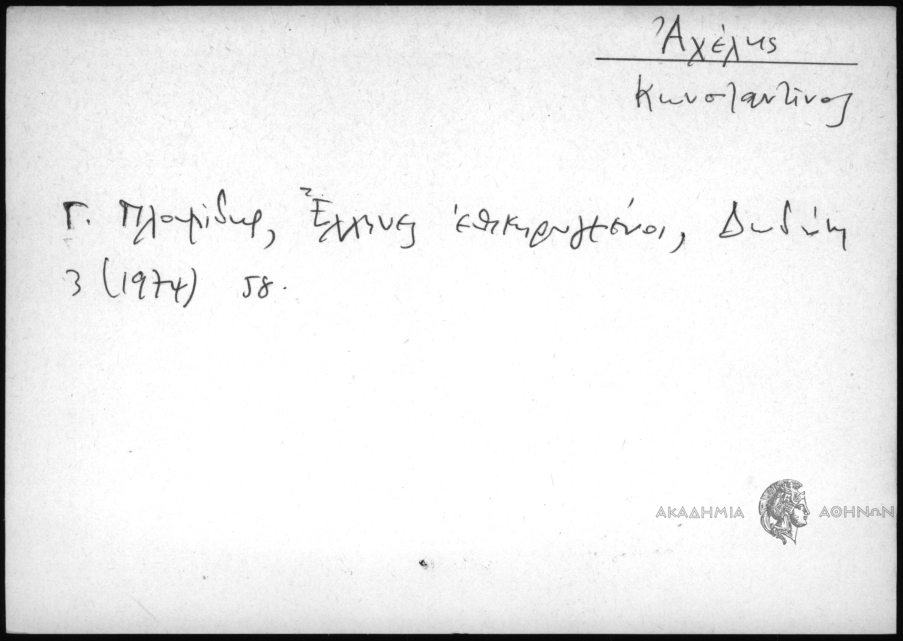 Ἀχέλης
Κωνσταντῖνος
Γ. Πλουμίδης, Ἕλληνες ἐπικηρυγμένοι, Δωδώνη
3 (1974) 58.
ΑΚΑΔΗΜΙΑ ΑΘΗΝΩΝ